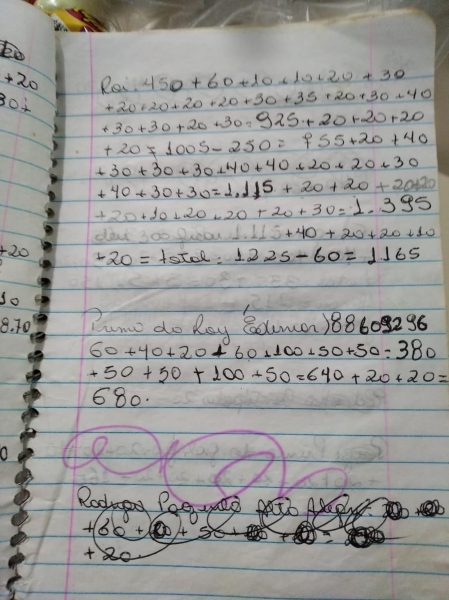 Roi: 450 + 60 + 10 + 10 + 20 + 30
+ 20 + 20 + 20 + 20 + 30 + 35 + 20 + 30 + 40
+ 30 + 30 + 20 + 30 = 925 + 20 + 20 + 20
+ 20 = 1005 - 250 = 755 + 20 + 40
+ 30 + 30 + 30 + 40 + 40 + 20 + 20 + 30
+ 40 + 30 + 30 = 1.115 + 20 + 20 + 20 + 20
+ 20 + 10 + 20 + 20 + 20 + 30 = 1.395
deu 300 ficou 1.115 + 40 + 20 + 20 + 10
+ 20 = total: 1225 - 60 = 1165
Primo do Roy (Edimor) 88609296
60 + 40 + 20 + 60 + 100 + 50 + 50 = 380
+ 50 + 50 + 100 + 50 = 640 + 20 + 20 =
680.
+ 60 +
+ 20
+ 20
30 =
+ 20
10
8.70
0